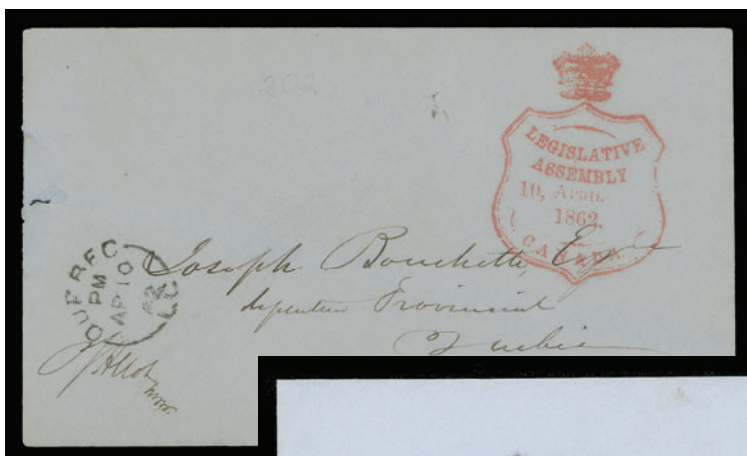 202
LEGISLATIVE
ASSEMBLY
10, APRIL
1862
CANADA
QUEBEC
PM
AP 10
62
L.C
Joseph Bouchette, Esqre
Provincial
Quebec